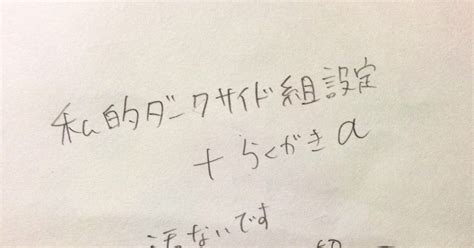 私的ダークサイド組設定
+らくがきα
ないです